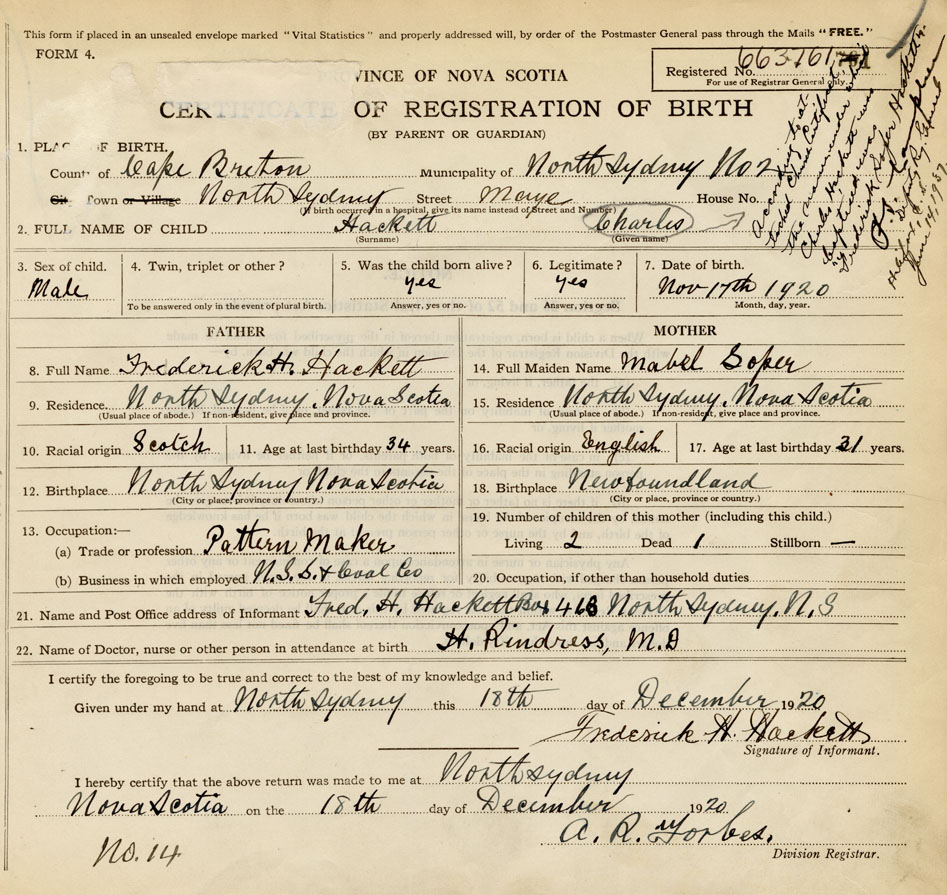 This form if placed in an unsealed envelope marked "Vital Statistics" and properly addressed will, by order of the Postmaster General pass through the Mails "FREE."
FORM 4.
Registered No. 663761
For use of Registrar General only.
VINCE OF NOVA SCOTIA
CERTIFICATE OF REGISTRATION OF BIRTH
(BY PARENT OR GUARDIAN)
1. PLAC OF BIRTH.
County of Cape Breton Municipality of North Sydney No 2
City Town or Village North Sydney Street House No.
(If birth occurred in a hospital, give its name instead of Street and Number)
2. FULL NAME OF CHILD Hackett Charles
(Surname) (Given name)
According to at-
tached
the
Charles Hackett was
baptised
"Frederick Soper Hackett".
Halifax, N.S.
June 14, 1937
3. Sex of child. Male
4. Twin, triplet or other ?
To be answered only in the event of plural birth.
5. Was the child born alive? yes
Answer, yes or no.
6. Legitimate ? yes
Answer, yes or no.
7. Date of birth. Nov 17th 1920
Month, day, year.
FATHER
8. Full Name Frederick H. Hackett
9. Residence. North Sydney, Nova Scotia
(Usual place of abode.) If non-resident, give place and province.
10. Racial origin Scotch 11. Age at last birthday 34 years.
12. Birthplace North Sydney Nova Scotia
(City or place, province or country.)
13. Occupation:—
(a) Trade or profession Pattern Maker
(b) Business in which employed N.S.S. & Coal Co
MOTHER
14. Full Maiden Name Mabel Soper
15. Residence North Sydney, Nova Scotia
(Usual place of abode.) If non-resident, give place and province.
16. Racial origin English 17. Age at last birthday 31 years.
18. Birthplace Newfoundland
(City or place, province or country.)
19. Number of children of this mother (including this child.)
Living 2 Dead 1 Stillborn —
20. Occupation, if other than household duties
21. Name and Post Office address of Informant Fred. H. Hackett Box 416 North Sydney, N.S
22. Name of Doctor, nurse or other person in attendance at birth H. Rindress, M.D
I certify the foregoing to be true and correct to the best of my knowledge and belief.
Given under my hand at North Sydney this 18th day of December 1920
Frederick H. Hackett
Signature of Informant.
I hereby certify that the above return was made to me at North Sydney
Nova Scotia on the 18th day of December 1920
A. R. Forbes.
Division Registrar.
No. 14